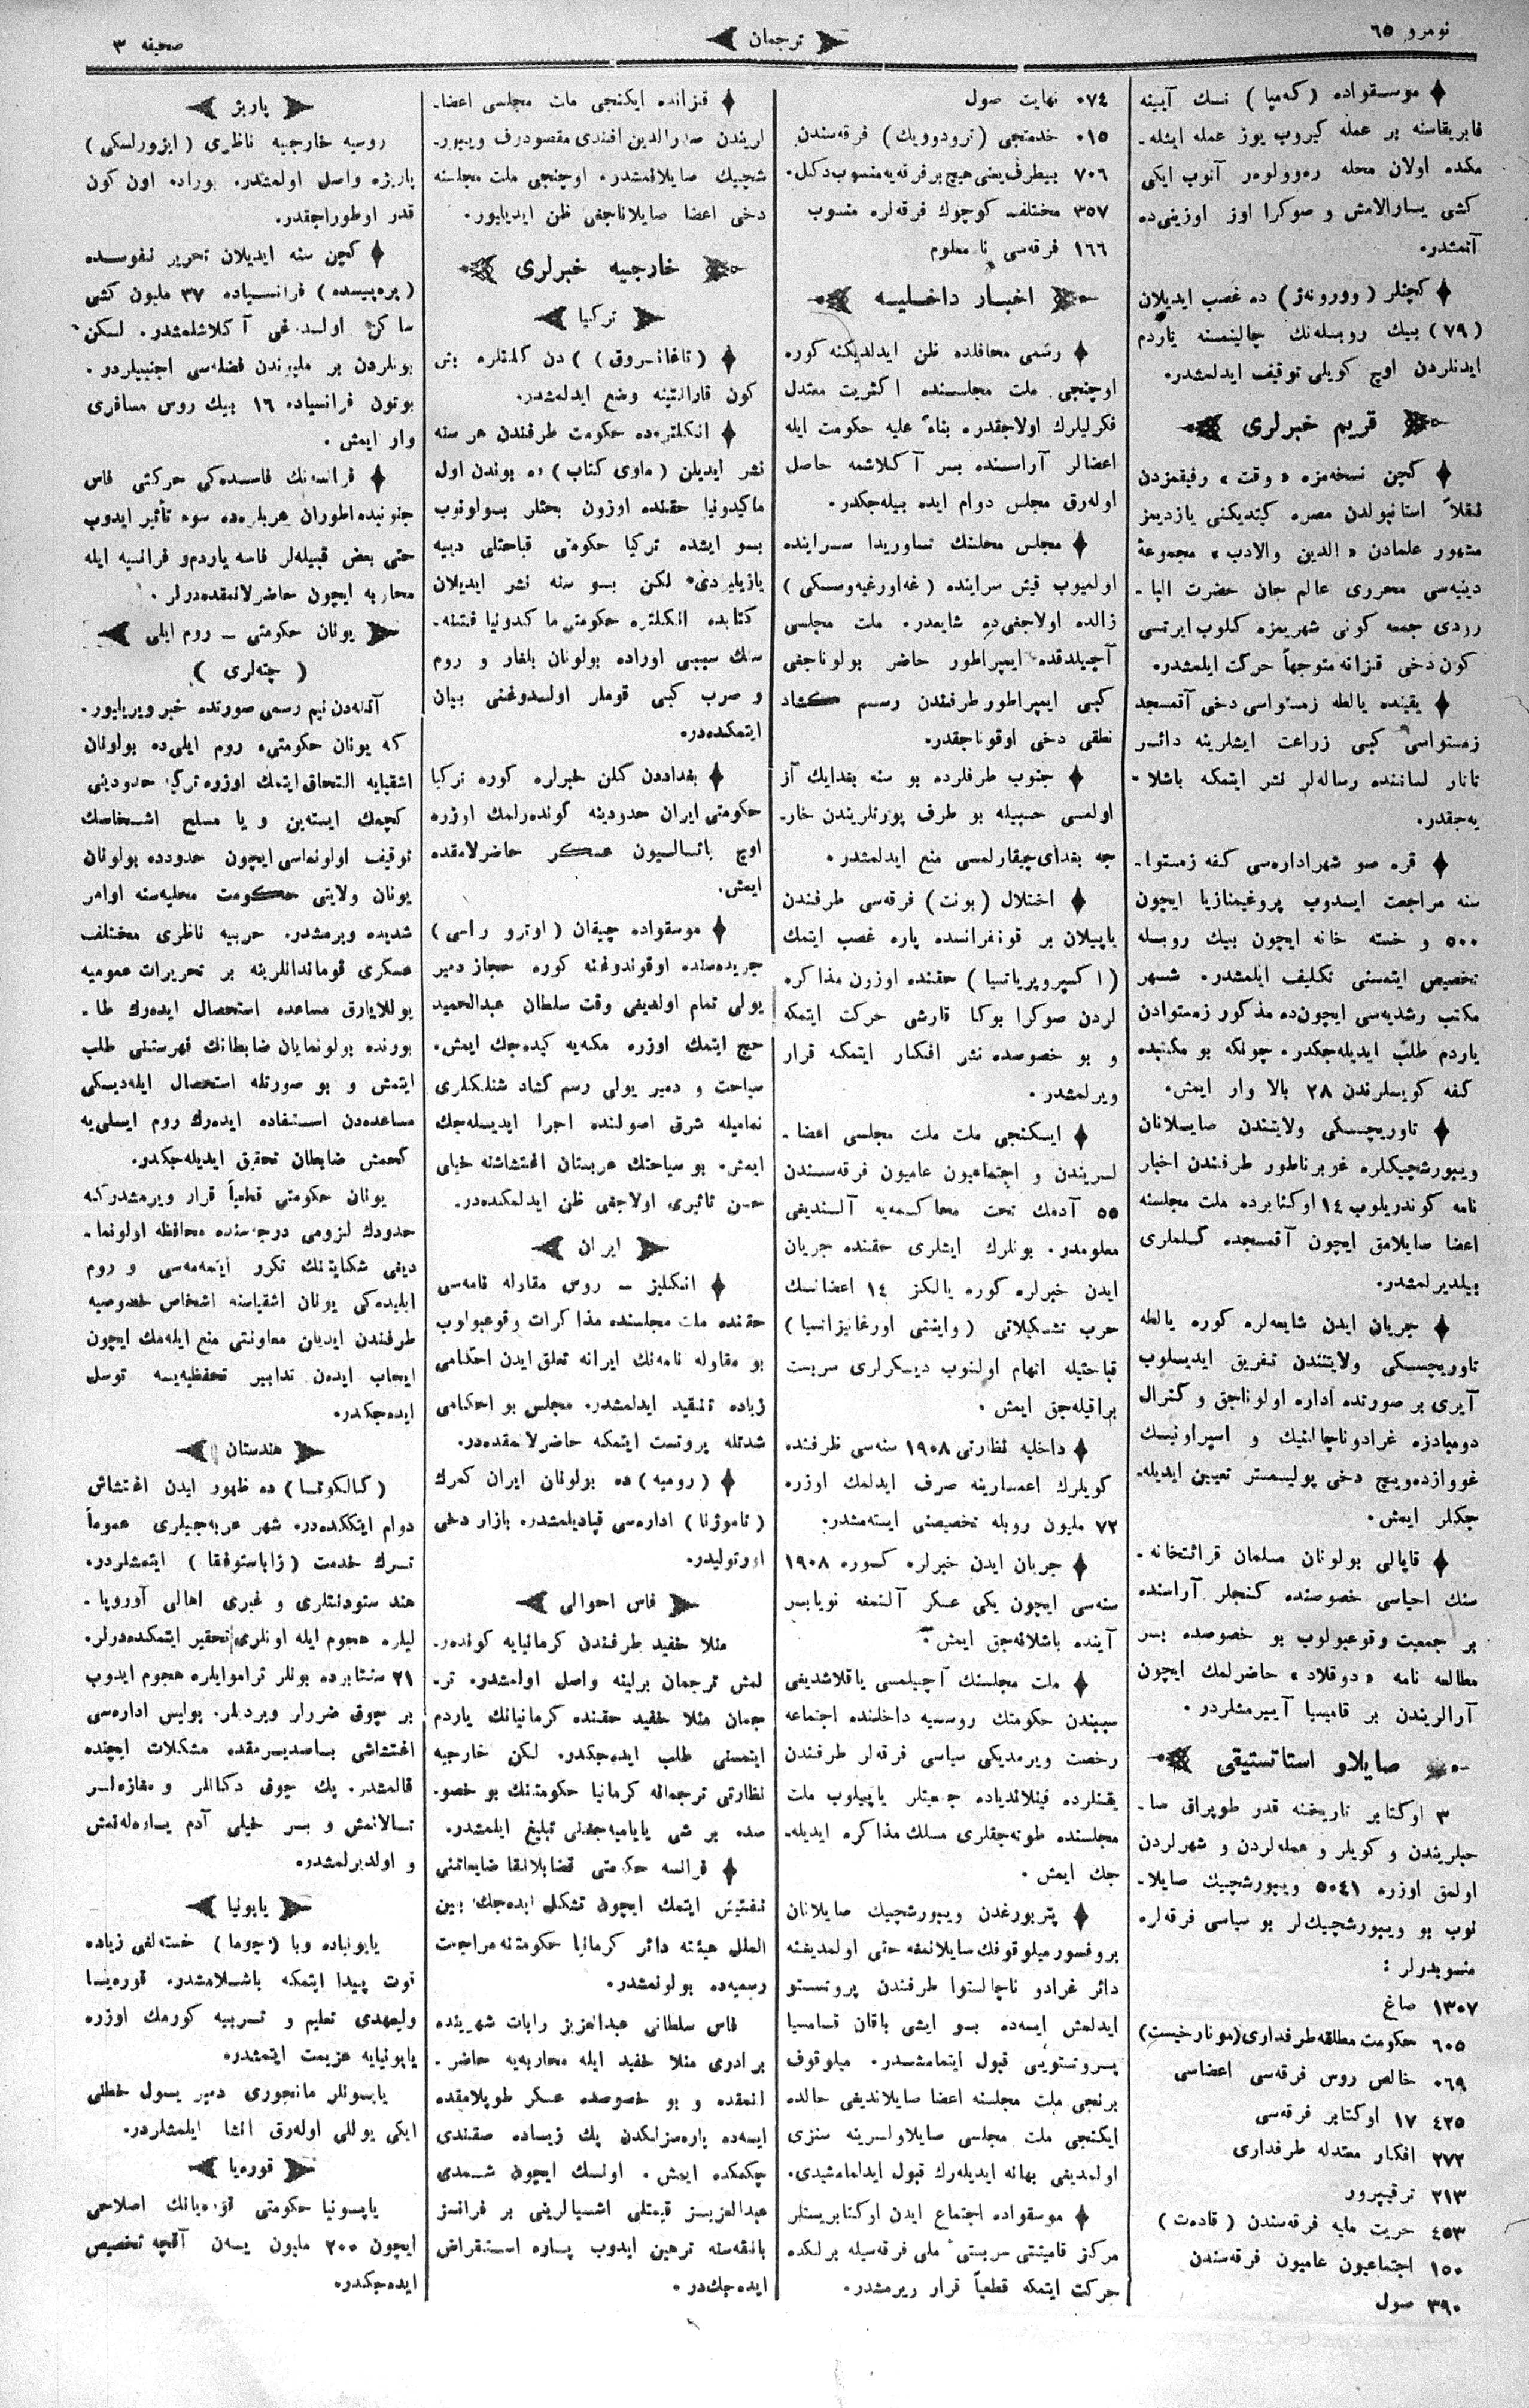 نومرو ٦٥
ترجمان
صحیفه ٣
موسقواده (كه‌مپا) نك آیینه
فابریقاسنه بر عمله كیروب یوز عمله ایشله-
مكده اولان محله ره‌وولوه‌ر آتوب ایكی
كشی یارالامش و صوكرا اوز اوزینی‌ده
آتمشدر.
كچنلر (وورونه‌ژ) ده غصب ایدیلان
(٧٩) بیك روبله‌نك چالینمسنه یاردم
ایدنلردن اوچ كویلی توقیف ایدلمشدر.
قریم خبرلری
كچن نسخه‌مزده «وقت» رفیقمزدن
نقلاً استانبولدن مصره كیتدیكنی یازدیمز
مشهور علمادن «الدین والادب» مجموعهٔ
دینیه‌سی محرری عالم جان حضرت البا-
رودی جمعه كونی شهریمزه كلوب ایرتسی
كون دخی قزانه متوجهاً حركت ایلمشدر.
یقینده یالطه زمستواسی دخی آقمسجد
زمستواسی كبی زراعت ایشلرینه دائر
تاتار لساننده رساله‌لر نشر ایتمكه باشلا-
یه‌جقدر.
قره صو شهر اداره‌سی كفه زمستوا-
سنه مراجعت ایدوب پروغیمنازیا ایچون
٥٠٠ و خسته خانه ایچون بیك روبله
تخصیص ایتمسنی تكلیف ایلمشدر. شهر
مكتب رشدیه‌سی ایچون‌ده مذكور زمستوادن
یاردم طلب ایدیله‌جكدر. چونكه بو مكتبده
كفه كویلرندن ٢٨ بالا وار ایمش.
تاوریچسكی ولایتندن صایلانان
ویبورشچیكلره غوبرناطور طرفندن اخبار
نامه كوندریلوب ١٤ اوكتابرده ملت مجلسنه
اعضا صایلامق ایچون آقمسجده كلملری
بیلدیرلمشدر.
جریان ایدن شایعه‌لره كوره یالطه
تاوریچسكی ولایتندن تفریق ایدیلوب
آیری بر صورتده اداره اولوناجق و كنرال
دومبادزه غرادوناچالنیك و اسپراونیك
غووازده‌ویچ دخی پولیسمستر تعیین ایدیله-
جكلر ایمش.
قاپالی بولونان مسلمان قرائتخانه-
سنك احیاسی خصوصنده كنجلر آراسنده
بر جمعیت وقوعبولوب بو خصوصده بر
مطالعه نامه «دوقلاد» حاضرلمك ایچون
آرالریندن بر قامیسیا آییرمشلردر.
صایلاو استاتستیقی
٣ اوكتابر تاریخنه قدر طوپراق صا-
حبلریندن و كویلر و عمله‌لردن و شهرلردن
اولمق اوزره ٥٠٤١ ویبورشچیك صایلا-
نوب بو ویبورشچیك‌لر بو سیاسی فرقه‌لره
منسوبدرلر:
١٣٠٧ صاغ
٦٠٥ حكومت مطلقه طرفداری (مونارخیست)
٠٦٩ خالص روس فرقه‌سی اعضاسی
٤٢٥ ١٧ اوكتابر فرقه‌سی
٢٧٢ افكار معتدله طرفداری
٢١٣ ترقیپرور
٤٥٣ حریت ملیه فرقه‌سندن (قاده‌ت)
١٥٠ اجتماعیون عامیون فرقه‌سندن
٣٩٠ صول
٠٧٤ نهایت صول
٠١٥ خدمتچی (ترودوویك) فرقه‌سندن
٧٠٦ بیطرف یعنی هیچ بر فرقه‌یه منسوب دكل.
٣٥٧ مختلف كوچوك فرقه‌لره منسوب
١٦٦ فرقه‌سی نا معلوم
اخبار داخلیه
رسمی محافلده ظن ایدلدیكنه كوره
اوچنجی ملت مجلسنده اكثریت معتدل
فكرلیلرك اولاجقدر. بناءً علیه حكومت ایله
اعضالر آراسنده بر آكلاشمه حاصل
اوله‌رق مجلس دوام ایده بیله‌جكدر.
مجلس محلنك تاوریدا سراینده
اولمیوب قیش سراینده (غه‌اورغیه‌وسكی)
زالده اولاجغی‌ده شایعدر. ملت مجلسی
آچیلدقده ایمپراطور حاضر بولوناجغی
كبی ایمپراطور طرفندن رسم كشاد
نطقی دخی اوقوناجقدر.
جنوب طرفلرده بو سنه بغدایك آز
اولمسی حسبیله بو طرف پورتلریندن خار-
جه بغدای چیقارلمسی منع ایدلمشدر.
اختلال (بونت) فرقه‌سی طرفندن
یاپیلان بر قونفرانسده پاره غصب ایتمك
(اكسپروپریاتسیا) حقنده اوزون مذاكره
لردن صوكرا بوكا قارشی حركت ایتمكه
و بو خصوصده نشر افكار ایتمكه قرار
ویرلمشدر.
ایكنجی ملت ملت مجلسی اعضا-
لریندن و اجتماعیون عامیون فرقه‌سندن
٥٥ آدمك تحت محاكمه‌یه آلندیغی
معلومدر. بونلرك ایشلری حقنده جریان
ایدن خبرلره كوره یالكز ١٤ اعضانك
حرب تشكیلاتی (واینّی اورغانیزاتسیا)
قباحتیله اتهام اولنوب دیكرلری سربست
براقیله‌جق ایمش.
داخلیه نظارتی ١٩٠٨ سنه‌سی ظرفنده
كویلرك اعمارینه صرف ایدلمك اوزره
٧٢ ملیون روبله تخصیصنی ایسته‌مشدر.
جریان ایدن خبرلره كوره ١٩٠٨
سنه‌سی ایچون یكی عسكر آلنمغه نویابر
آینده باشلانه‌جق ایمش.
ملت مجلسنك آچیلمسی یاقلاشدیغی
سببندن حكومتك روسیه داخلنده اجتماعه
رخصت ویرمدیكی سیاسی فرقه‌لر طرفندن
یقینلرده فینلاندیاده جمعیتلر یاپیلوب ملت
مجلسنده طوته‌جقلری مسلك مذاكره ایدیله-
جك ایمش.
پتربورغدن ویبورشچیك صایلانان
پروفسور میلوقوفك صایلانمغه حتی اولمدیغنه
دائر غرادو ناچالستوا طرفندن پروتستو
ایدلمش ایسه‌ده بو ایشی باقان قامسیا
پروتستویی قبول ایتمامشدر. میلوقوف
برنجی ملت مجلسنه اعضا صایلاندیغی حالده
ایكنجی ملت مجلسی صایلاولرینه سنزی
اولمدیغی بهانه ایدیله‌رك قبول ایدلمامشیدی.
موسقواده اجتماع ایدن اوكتابریستلر
مركز قامیتتی سربستیٔ ملی فرقه‌سیله برلكده
حركت ایتمكه قطعیاً قرار ویرمشدر.
قزانده ایكنجی ملت مجلسی اعضا-
لریندن صدرالدین افندی مقصودوف ویبور-
شچیك صایلانمشدر. اوچنجی ملت مجلسنه
دخی اعضا صایلاناجغی ظن ایدیلیور.
خارجیه خبرلری
تركیا
(تاغانروق) دن كلنلره بش
كون قارانتینه وضع ایدلمشدر.
انكلتره‌ده حكومت طرفندن هر سنه
نشر ایدیلن (ماوی كتاب) ده بوندن اول
ماكیدونیا حقنده اوزون بحثلر بولونوب
بو ایشده تركیا حكومتی قباحتلی دییه
یازیلیردی. لكن بو سنه نشر ایدیلان
كتابده انكلتره حكومتی ماكدونیا فتنه-
سنك سببی اوراده بولونان بلغار و روم
و صرب كبی قوملر اولدوغنی بیان
ایتمكده‌در.
بغداددن كلن خبرلره كوره تركیا
حكومتی ایران حدودینه كوندرلمك اوزره
اوچ باتالیون عسكر حاضرلامقده
ایمش.
موسقواده چیقان (اوترو راسی)
جریده‌سنده اوقوندوغنه كوره حجاز دمیر
یولی تمام اولدیغی وقت سلطان عبدالحمید
حج ایتمك اوزره مكه‌یه كیده‌جك ایمش.
سیاحت و دمیر یولی رسم كشاد شنلكلری
تمامیله شرق اصولنده اجرا ایدیله‌جك
ایمش. بو سیاحتك عربستان اغتشاشنه خیلی
حسن تاثیری اولاجغی ظن ایدلمكده‌در.
ایران
انكلیز - روس مقاوله نامه‌سی
حقنده ملت مجلسنده مذاكرات وقوعبولوب
بو مقاوله نامه‌نك ایرانه تعلق ایدن احكامی
زیاده تنقید ایدلمشدر. مجلس بو احكامی
شدتله پروتست ایتمكه حاضرلانمقده‌در.
(رومیه) ده بولونان ایران كمرك
(تاموژنا) اداره‌سی قپادیلمشدر. بازار دخی
اورتولیدر.
فاس احوالی
منلا حفید طرفندن كرمانیایه كوندر-
لمش ترجمان برلینه واصل اولمشدر. تر-
جمان منلا حفید حقنده كرمانیانك یاردم
ایتمسنی طلب ایده‌جكدر. لكن خارجیه
نظارتی ترجمانه كرمانیا حكومتنك بو خصو-
صده بر شی یاپامیه‌جغنی تبلیغ ایلمشدر.
فرانسه حكومتی قضابلانقا ضایعاتنی
تفتیش ایتمك ایچون تشكل ایده‌جك بین
الملل هیئته دائر كرمانیا حكومتنه مراجعت
رسمیه‌ده بولونمشدر.
فاس سلطانی عبدالعزیز رابات شهرینده
برادری منلا حفید ایله محاربه‌یه حاضر-
لانمقده و بو خصوصده عسكر طوپلامقده
ایسه‌ده پاره‌سزلكدن پك زیاده صقندی
چكمكده ایمش. اونك ایچون شمدی
عبدالعزیز قیمتلی اشیالرینی بر فرانسز
بانقه‌سنه ترهین ایدوب پاره استقراض
ایده‌جك‌در.
پاریژ
روسیه خارجیه ناظری (ایزورلسكی)
پاریژه واصل اولمشدر. بوراده اون كون
قدر اوطوراجقدر.
كچن سنه ایدیلان تحریر نفوسده
(پره‌پیسده) فرانسیاده ٣٧ ملیون كشی
ساكن اولدیغی آكلاشلمشدر. لكن
بونلردن بر ملیوندن فضله‌سی اجنبیلردر.
بوتون فرانسیاده ١٦ بیك روس مسافری
وار ایمش.
فرانسه‌نك فاسده‌كی حركتی فاس
جنوبنده اطوران عربلرده سوء تأثیر ایدوب
حتی بعض قبیله‌لر فاسه یاردم و فرانسیه ایله
محاربه ایچون حاضرلانمقده‌درلر.
یونان حكومتی - روم ایلی
(چته‌لری)
آتنه‌دن نیم رسمی صورتده خبر ویریلیور.
كه یونان حكومتی، روم ایلی‌ده بولونان
اشقیایه التحاق ایتمك اوزره تركیا حدودینی
كچمك ایسته‌ین و یا مسلح اشخاصك
توقیف اولونماسی ایچون حدودده بولونان
یونان ولایتی حكومت محلیه‌سنه اوامر
شدیده ویرمشدر. حربیه ناظری مختلف
عسكری قوماندانلرینه بر تحریرات عمومیه
یوللایارق مساعده استحصال ایده‌رك طا-
بورنده بولونمایان ضابطانك فهرستنی طلب
ایتمش و بو صورتله استحصال ایله‌دیكی
مساعده‌دن استفاده ایده‌رك روم ایلی‌یه
كچمش ضابطان تحقیق ایدیله‌جكدر.
یونان حكومتی قطعیاً قرار ویرمشدر كه
حدودك لزومی درجه‌سنده محافظه اولونما-
دیغی شكایتنك تكرر ایتمه‌مه‌سی و روم
ایلیده‌كی یونان اشقیاسنه اشخاص خصوصیه
طرفندن ایدیلن معاونتی منع ایله‌مك ایچون
ایجاب ایدن تدابیر تحفظیه‌یه توسل
ایده‌جكدر.
هندستان
(كالكوتا) ده ظهور ایدن اغتشاش
دوام ایتكده‌در. شهر عربه‌جیلری عموماً
ترك خدمت (زاباستوفقا) ایتمشلردر.
هند ستودنتلری و غیری اهالی آوروپا-
لیلره هجوم ایله اونلری تحقیر ایتمكده‌درلر.
٢١ سنتابرده بونلر تراموایلره هجوم ایدوب
بر چوق ضررلر ویردیلر. پولیس اداره‌سی
اغتشاشی باصدیرمقده مشكلات ایچنده
قالمشدر. پك چوق دكانلر و مغازه‌لر
تالانمش و بر خیلی آدم یاره‌له‌نمش
و اولدیرلمشدر.
یاپونیا
یاپونیاده وبا (چوما) خسته‌لغی زیاده
قوت پیدا ایتمكه باشلامشدر. قوره‌یا
ولیعهدی تعلیم و تربیه كورمك اوزره
یاپونیایه عزیمت ایتمشدر.
یاپونلر مانجوری دمیر یول خطنی
ایكی یوللی اوله‌رق انشا ایلمشلردر.
قوره‌یا
یاپونیا حكومتی قوره‌یانك اصلاحی
ایچون ٢٠٠ ملیون یه‌ن آقچه تخصیص
ایده‌جكدر.